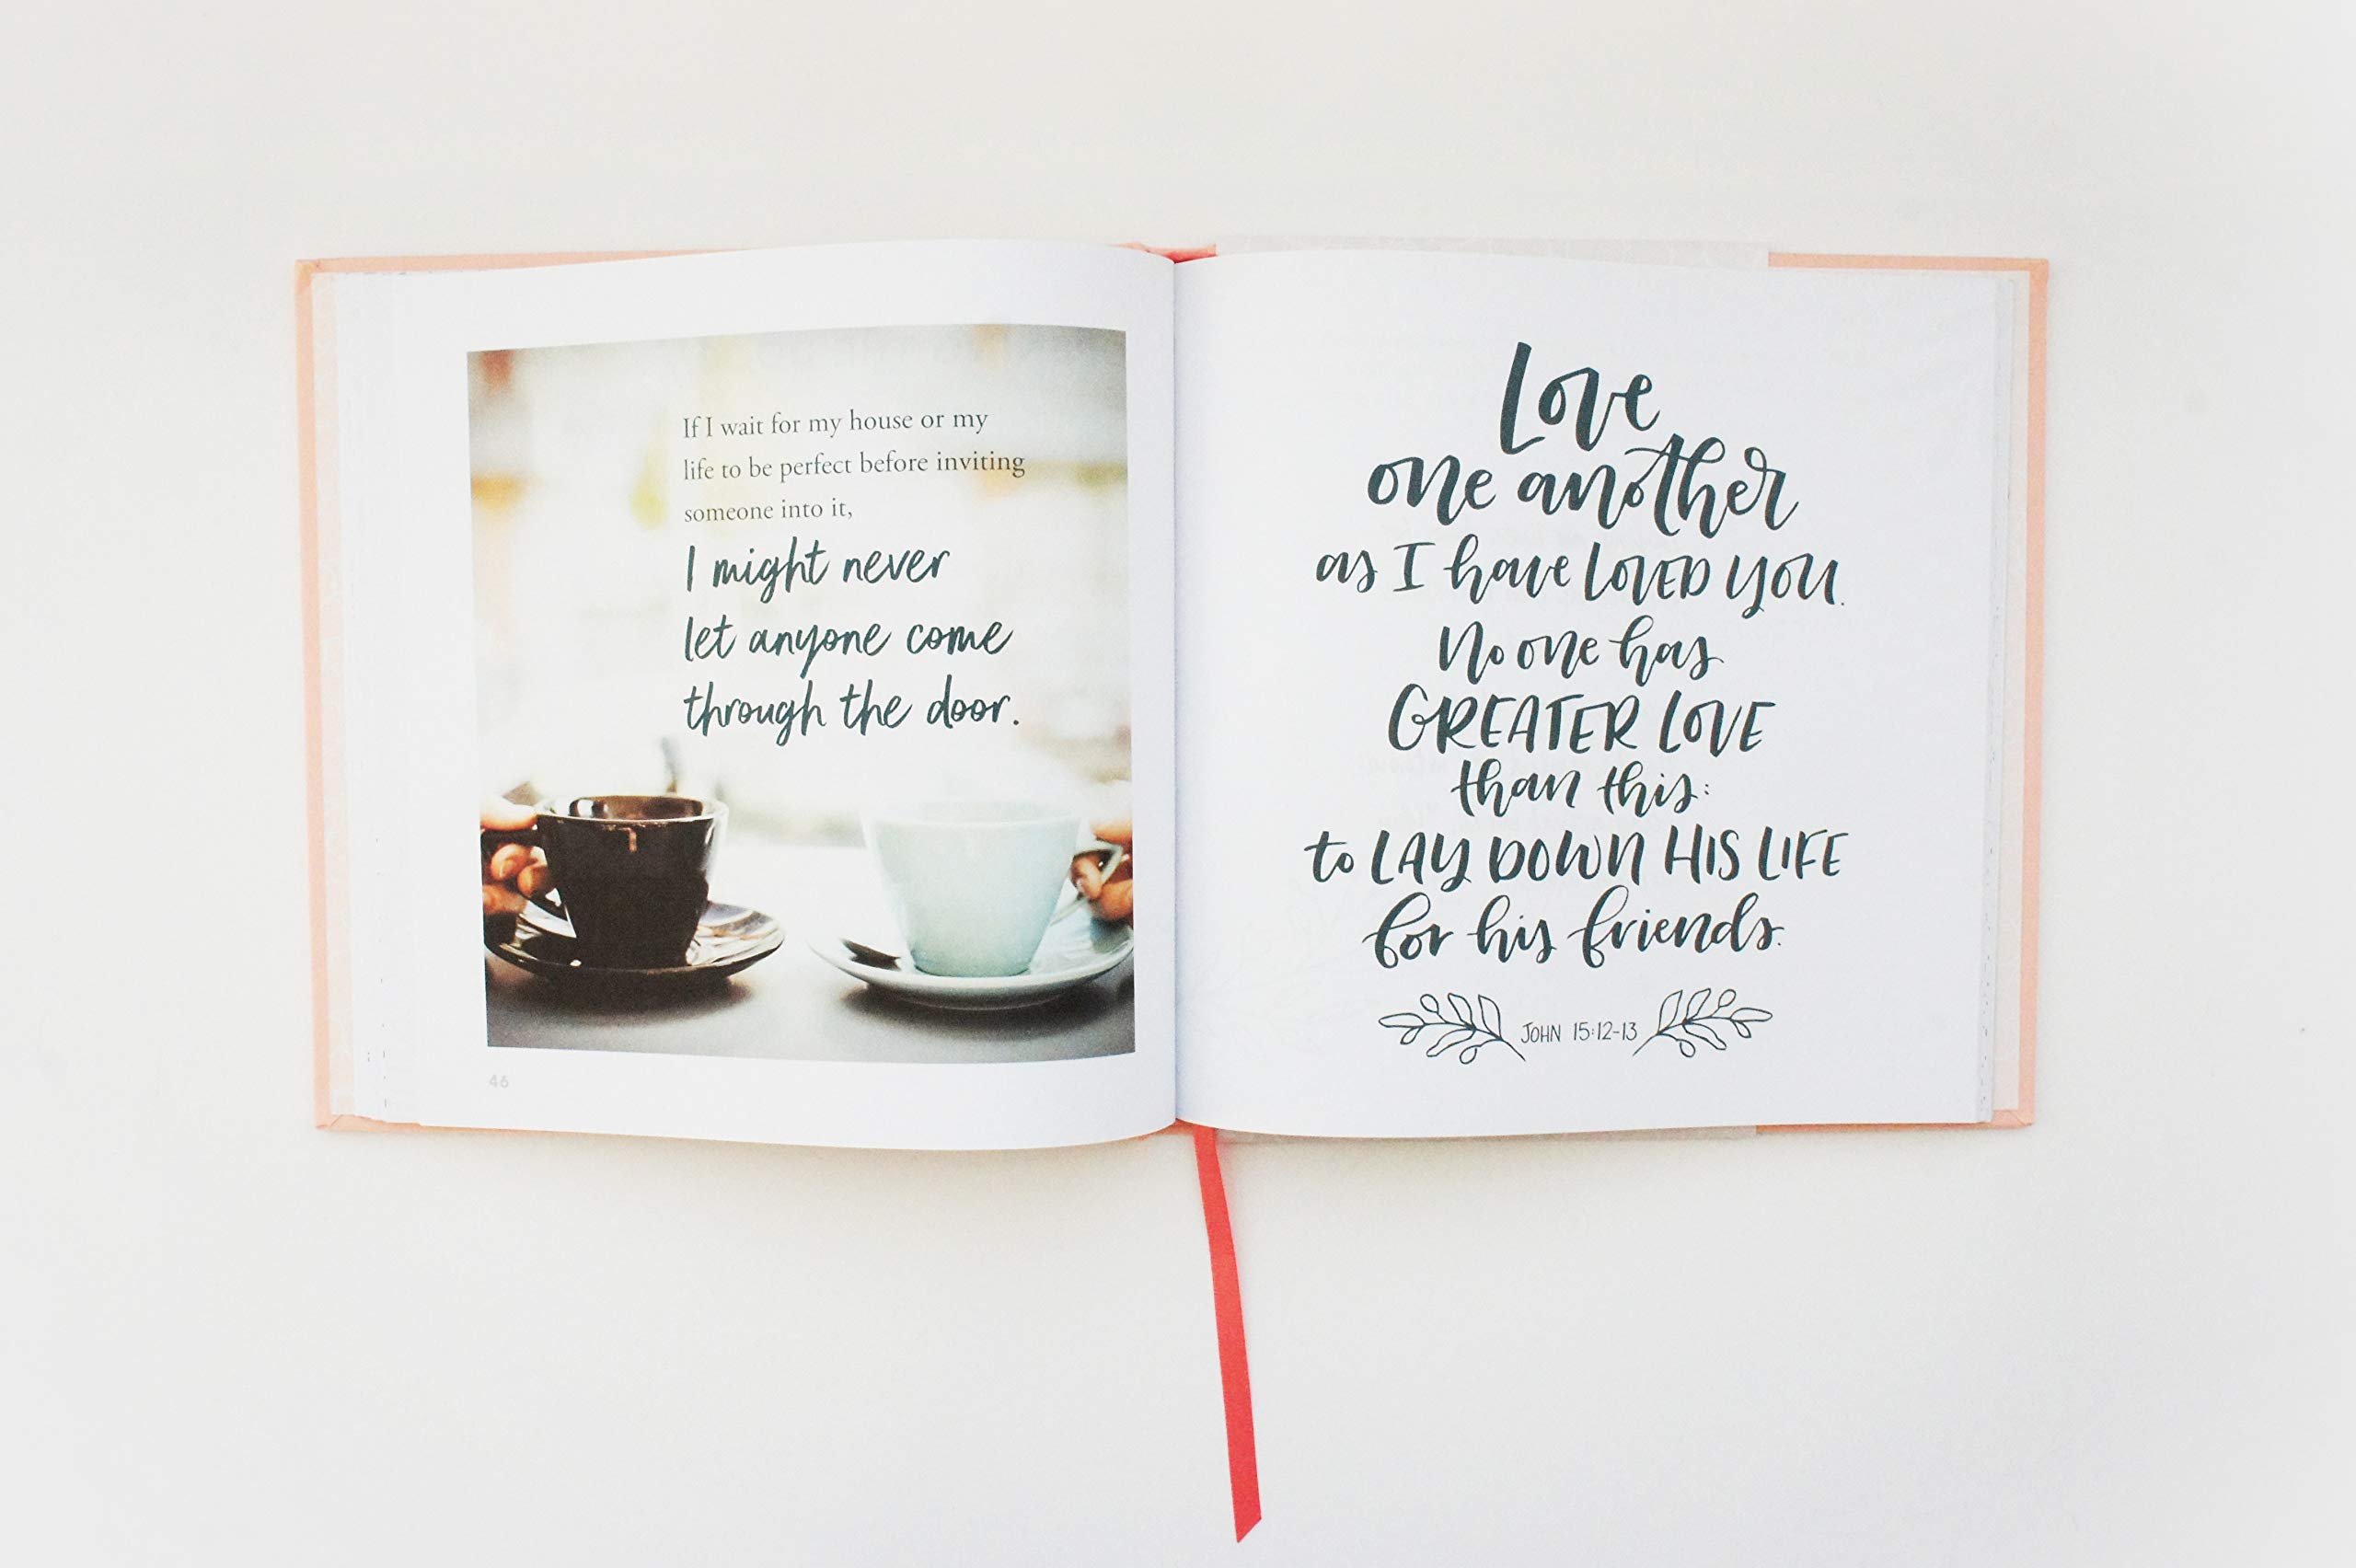 If I wait for my house or my
life to be perfect before inviting
someone into it,
I might never
let anyone come
through the door.
46
Love
one another
as I have LOVED YOU.
No one has
GREATER LOVE
than this:
to LAY DOWN HIS LIFE
for his friends.
JOHN 15:12-13